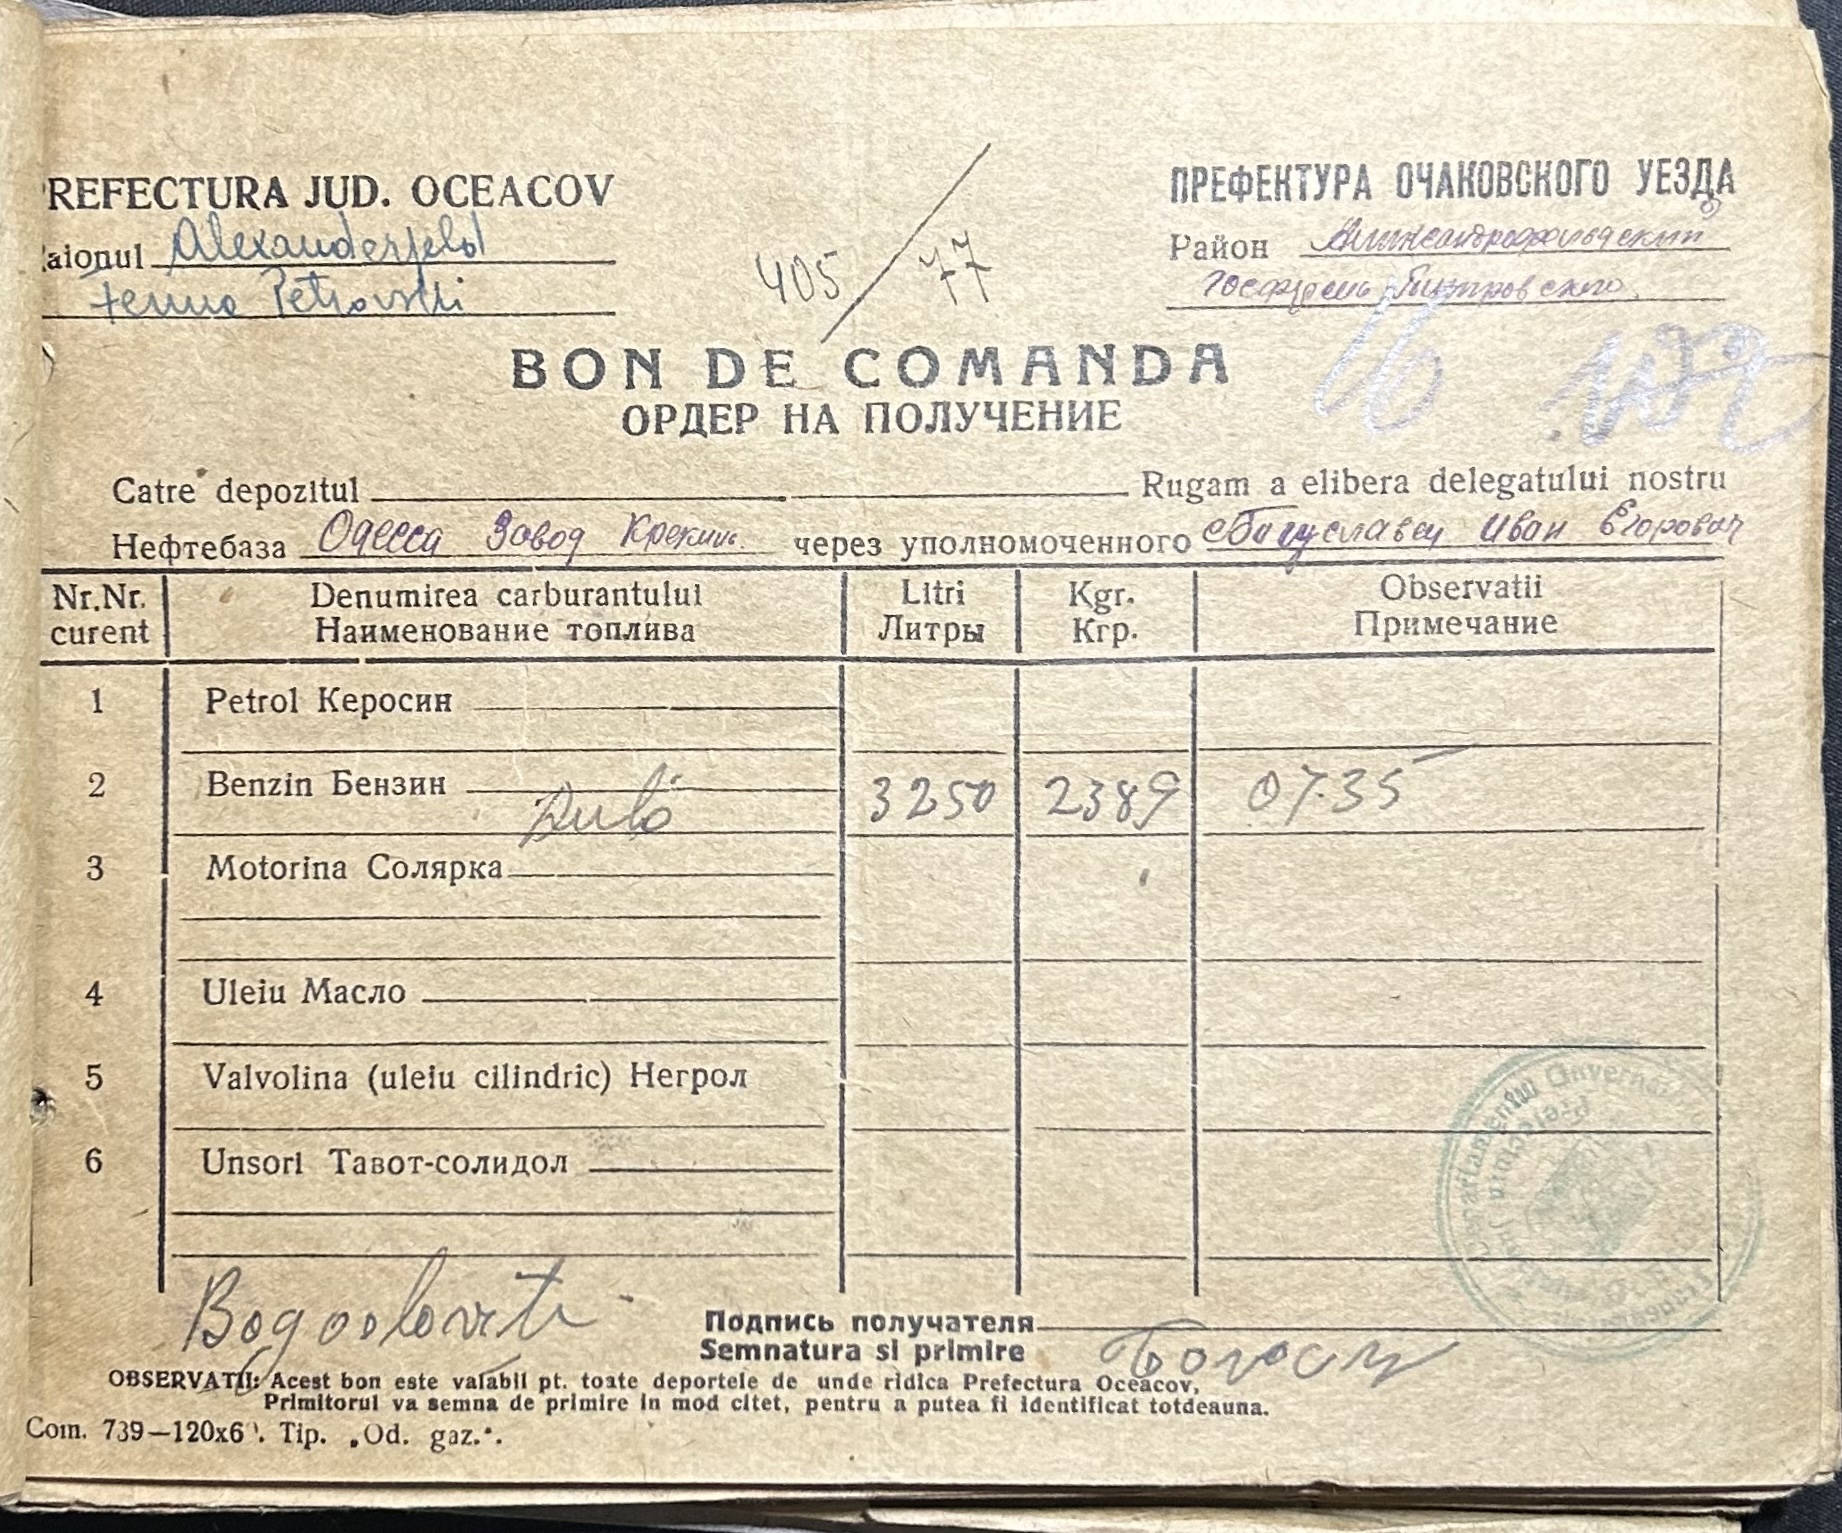 REFECTURA JUD. OCEACOV
aionul Alexanderfeld
Ferma Petrovski
405/77
ПРЕФЕКТУРА ОЧАКОВСКОГО УЕЗДА
Район Александрофельдский
Госферма
16
BON DE COMANDA
ОРДЕР НА ПОЛУЧЕНИЕ
Catre depozitul Rugam a elibera delegatului nostru
Нефтебаза Одесса Завод Крекинг через уполномоченного Иван Егорович
Nr.Nr. curent Denumirea carburantului Litri Kgr. Observatii
Наименование топлива Литры Кгр. Примечание
1 Petrol Керосин
2 Benzin Бензин 3250 2389 0735
3 Motorina Солярка
4 Uleiu Масло
5 Valvolina (uleiu cilindric) Негрол
6 Unsori Тавот-солидол
Подпись получателя
Semnatura si primire
OBSERVATII: Acest bon este valabil pt. toate deportele de unde ridica Prefectura Oceacov,
Primitorul va semna de primire in mod citet, pentru a putea fi identificat totdeauna.
Com. 739—120x6 . Tip. „Od. gaz.“.